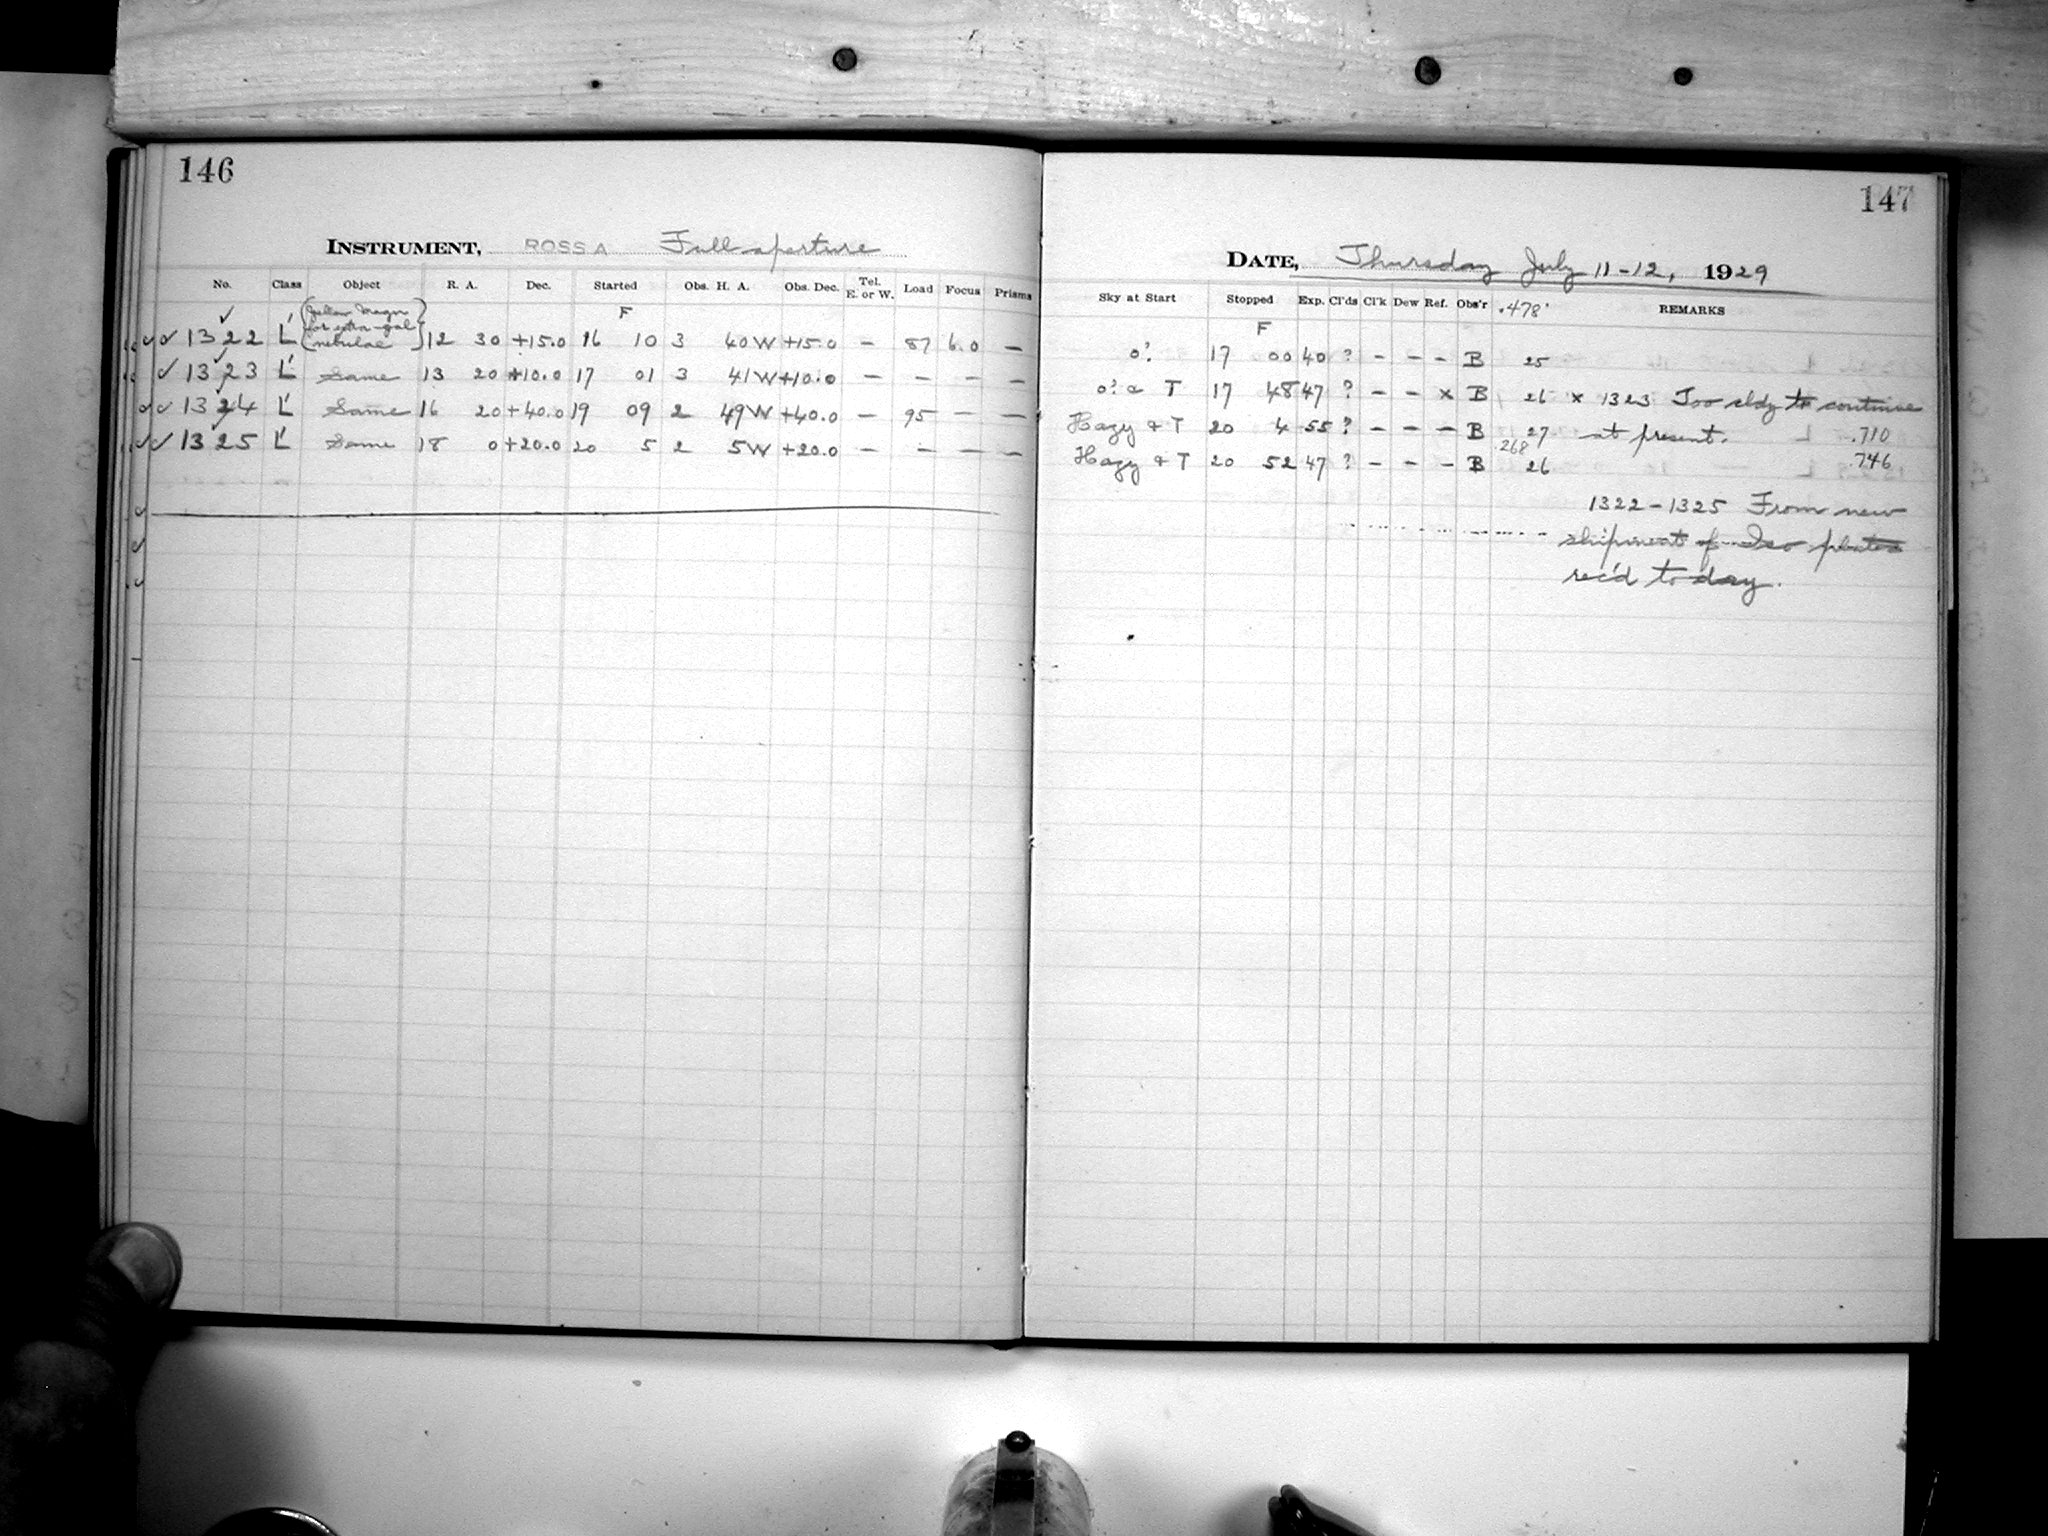 146
INSTRUMENT, ROSS A Full aperture
No. Class Object R. A. Dec. Started Obs. H. A. Obs. Dec. Tel. E. or W. Load Focus Prisms
F
✓ ✓ 1322 L' {Yellow Magn for extra-gal nebulae} 12 30 +15.0 16 10 3 40W +15.0 — 87 6.0 —
✓ 1323 L' Same 13 20 +10.0 17 01 3 41W +10.0 — — — —
✓ ✓ 1324 L' Same 16 20 +40.0 19 09 2 49W +40.0 — 95 — —
✓ ✓ 1325 L' Same 18 0 +20.0 20 5 2 5W +20.0 — — — —
147
DATE, Thursday July 11-12, 1929
Sky at Start Stopped Exp. Cl'ds Cl'k Dew Ref. Obs'r .478 REMARKS
F
0? 17 00 40 ? — — — B 25
0? & T 17 48 47 ? — — x B 26 x 1323 Too cldy to continue
Hazy & T 20 4 55 ? — — — B 27 at present. .710
Hazy & T 20 52 47 ? — — — B .268 26 .746
1322-1325 From new
shipment of Iso plates
rec'd today.